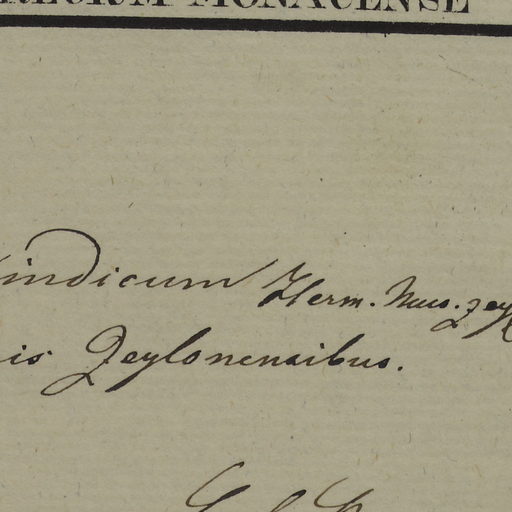 MONACENSE
indicum Herm. Mus. zey
is Zeylonensibus.